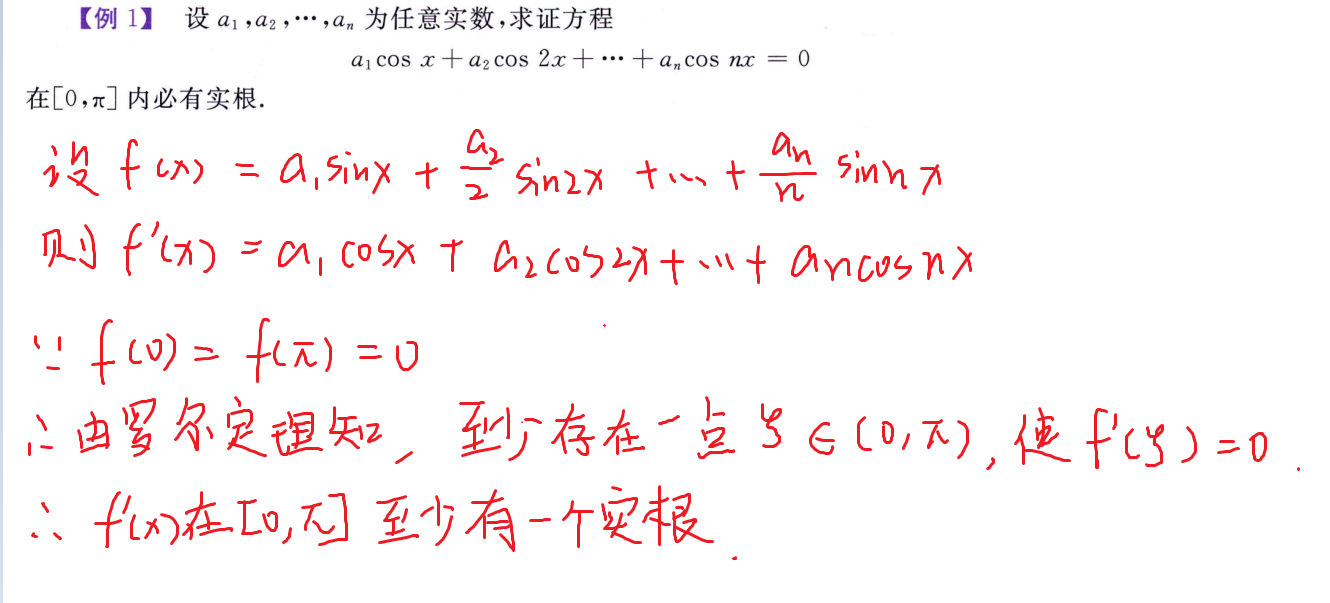 【例 1】 设 a₁,a₂,⋯,aₙ 为任意实数,求证方程
a₁cos x+a₂cos 2x+⋯+aₙcos nx = 0
在[0,π]内必有实根.
设 f(x) = a₁sinx + a₂/2 sin2x + ⋯ + aₙ/n sinnx
则 f′(x) = a₁cosx + a₂cos2x + ⋯ + aₙcosnx
∵ f(0) = f(π) = 0
∴ 由罗尔定理知, 至少存在一点 ξ ∈ (0,π), 使 f′(ξ) = 0.
∴ f′(x)在[0,π] 至少有一个实根.